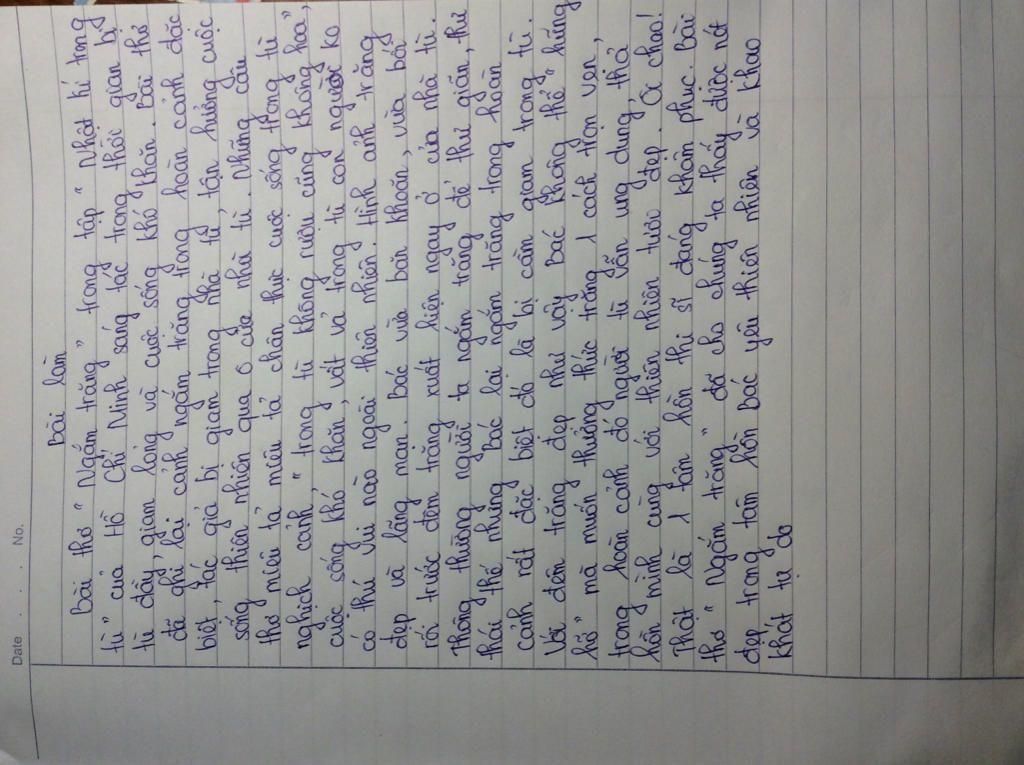 Date . . . No.
Bài làm
Bài thơ “Ngắm trăng” trong tập “Nhật kí trong
tù” của Hồ Chí Minh sáng tác trong thời gian bị
tù đầy, giam lỏng và cuộc sống khó khăn. Bài thơ
đã ghi lại cảnh ngắm trăng trong hoàn cảnh đặc
biệt, tác giả bị giam trong nhà tù, tận hưởng cuộc
sống thiên nhiên qua ô cửa nhà tù. Những câu
thơ miêu tả miêu tả chân thực cuộc sống trong tù
nghịch cảnh “trong tù không rượu cũng không hoa”,
cuộc sống khó khăn, vất vả trong tù con người ko
có thú vui nào ngoài thiên nhiên. Hình ảnh trăng
đẹp và lãng mạn. Bác vừa băn khoăn, vừa bối
rối trước đêm trăng xuất hiện ngay ở cửa nhà tù.
Thông thường người ta ngắm trăng để thư giãn, thư
thái thế nhưng Bác lại ngắm trăng trong hoàn
cảnh rất đặc biệt đó là bị cầm giam trong tù.
Với đêm trăng đẹp như vậy Bác không thể “hững
hờ” mà muốn thưởng thức trăng 1 cách trọn vẹn,
trong hoàn cảnh đó người tù vẫn ung dung, thả
hồn mình cùng với thiên nhiên tươi đẹp. Ôi chao!
Thật là 1 tâm hồn thi sĩ đáng khâm phục. Bài
thơ “Ngắm trăng” đã cho chúng ta thấy được nét
đẹp trong tâm hồn Bác yêu thiên nhiên và khao
khát tự do